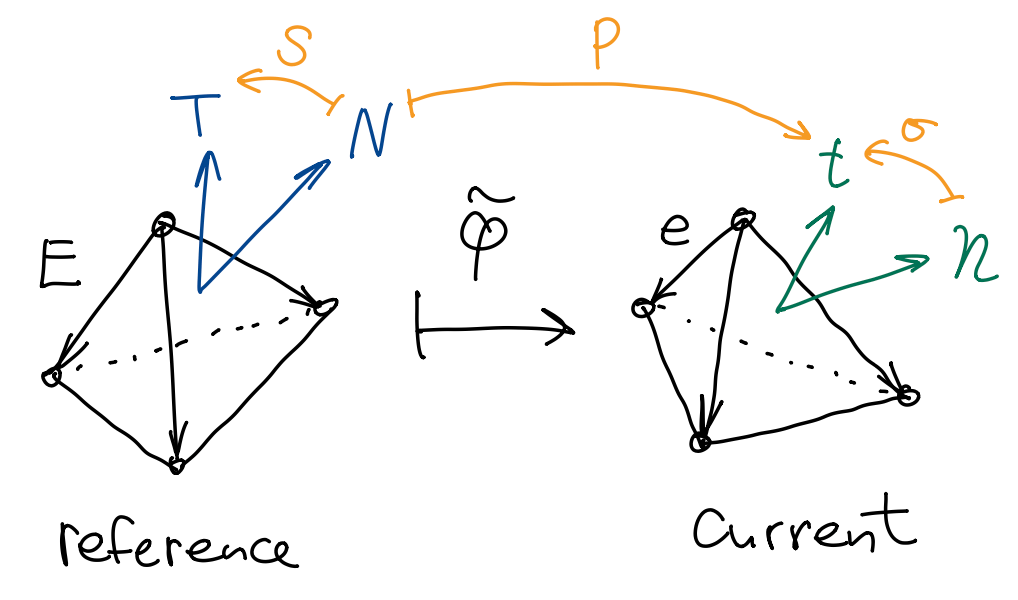 S
P
T
N
t
σ
n
E
φ̃
e
reference
Current